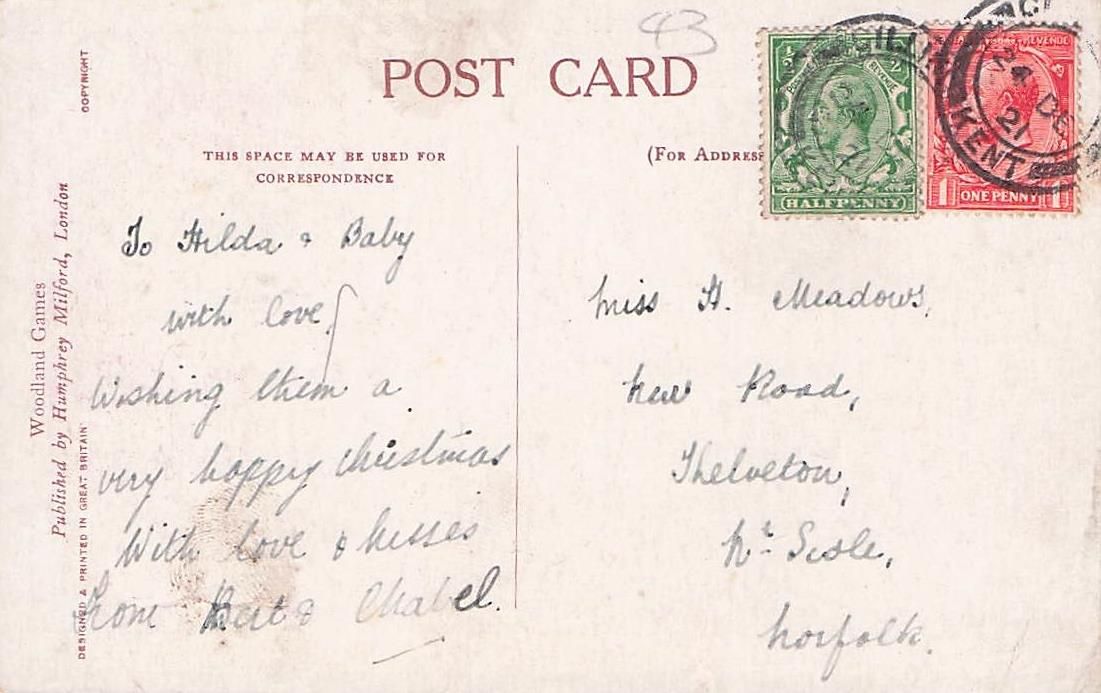 43
POST CARD
COPYRIGHT
THIS SPACE MAY BE USED FOR
CORRESPONDENCE
(FOR ADDRESS
HALFPENNY
REVENUE
ONE PENNY
KENT
24 DE
21
To Hilda & Baby
with love,
Wishing them a
very happy Christmas
With love & kisses
From Bert & Mabel.
Miss H. Meadows,
New Road,
Thelveton,
Nr. Scole,
Norfolk.
Woodland Games
Published by Humphrey Milford, London
DESIGNED & PRINTED IN GREAT BRITAIN